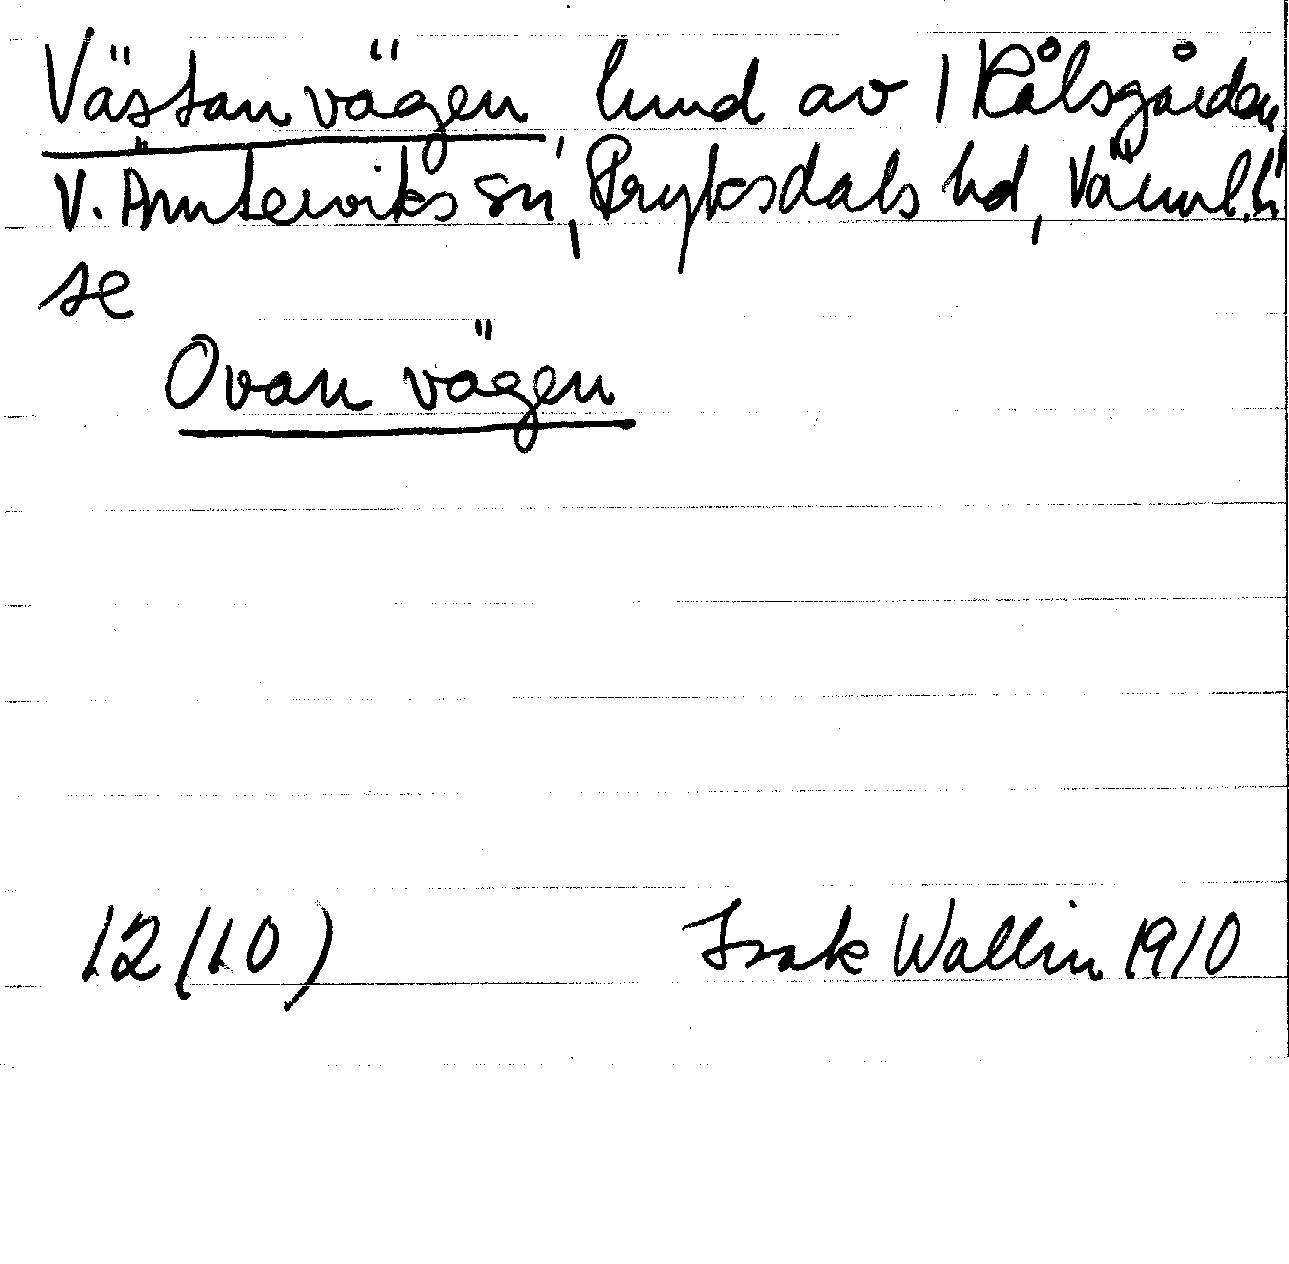 Västan vägen lund av 1 Rålsgården,
V. Ämterviks sn, Fryksdals hd, Värml. l.
se
Ovan vägen
12 (10) Isak Wallin 1910